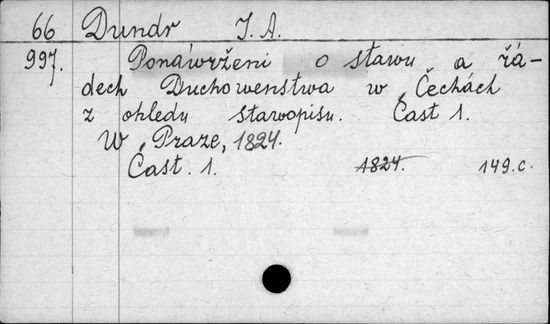 66 Dundr J. A.
997. Ponáwrženi o stawu a řá-
dech Duchowenstwa w Čechách
z ohledu stawopisu. Část 1.
W Praze, 1824.
Část. 1. 1824. 149.c.